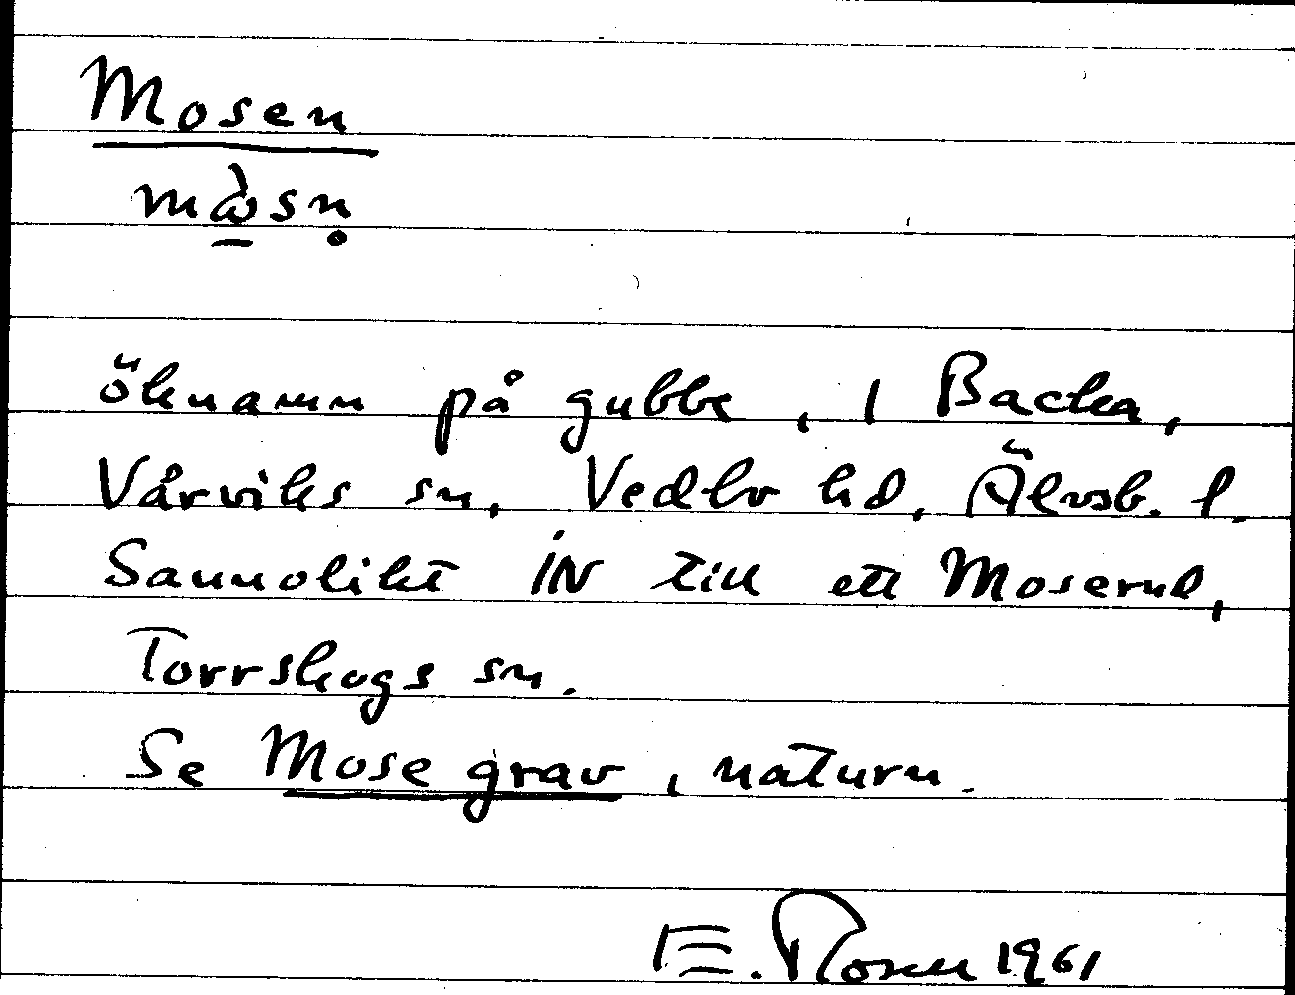 Mosen
mὼ̲sn̥
öknamn på gubbe, i Backa,
Vårviks sn, Vedbo hd, Älvsb. l.
Sannolikt IN till ett Moserud,
Torrskogs sn.
Se Mosegrav, naturn.
E. Rosen 1961